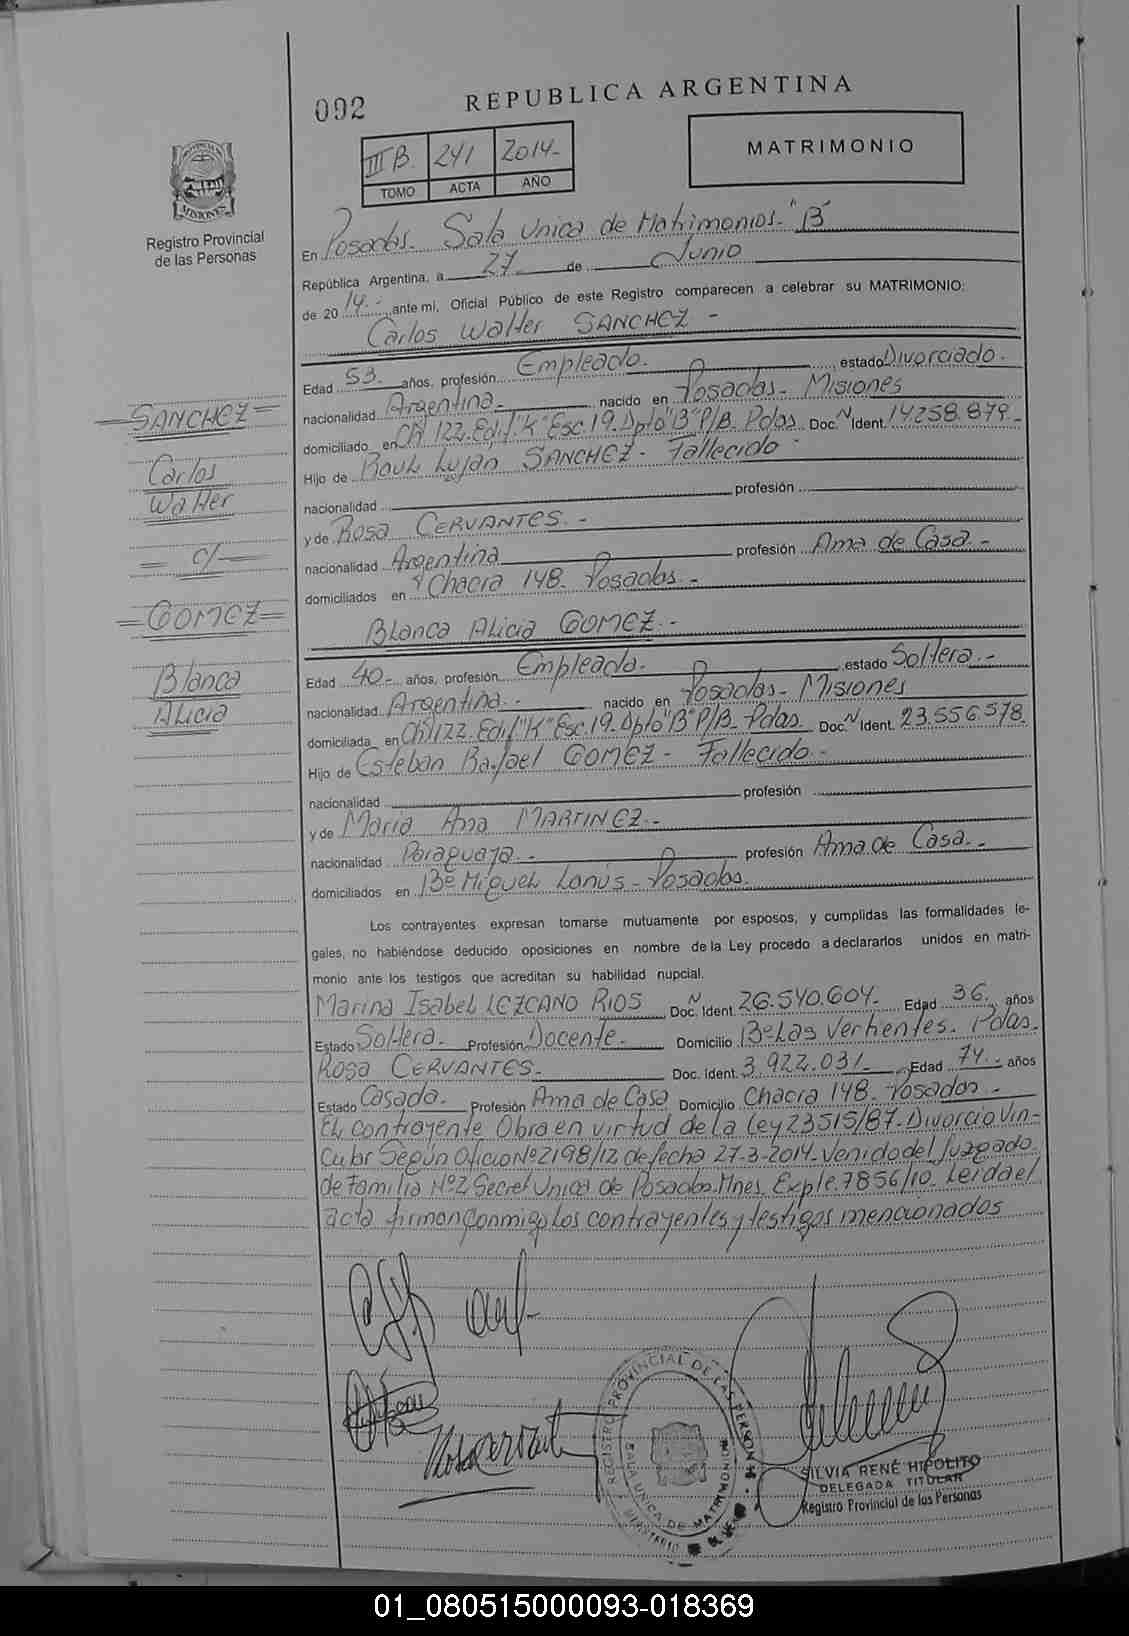 092
REPUBLICA ARGENTINA
III B. 241 2014-
TOMO ACTA AÑO
MATRIMONIO
PROVINCIA
MISIONES
Registro Provincial
de las Personas
En Posadas. Sala Unica de Matrimonios. "B"
República Argentina, a 27 de Junio
de 20 14.- ante mi, Oficial Público de este Registro comparecen a celebrar su MATRIMONIO:
Carlos Walter SANCHEZ -
Edad 53. años, profesión Empleado. estado Divorciado.
nacionalidad Argentina.- nacido en Posadas- Misiones
domiciliado en Ch 122. Edif "K" Esc. 19. Dpto "B" P/B. Pdas. Doc. N Ident. 14258.879-
Hijo de Raul Lujan SANCHEZ- Fallecido -
nacionalidad profesión
y de Rosa CERVANTES.-
nacionalidad Argentina profesión Ama de Casa.-
domiciliados en Chacra 148- Posadas.-
Blanca Alicia GOMEZ.-
Edad 40- años, profesión Empleada. estado Soltera.-
nacionalidad Argentina.- nacido en Posadas- Misiones
domiciliada en Ch 122. Edif "K" Esc. 19. Dpto "B" P/B- Pdas. Doc. N Ident. 23.556.578.
Hijo de Esteban Rafael GOMEZ- Fallecido.-
nacionalidad profesión
y de Maria Ana MARTINEZ.-
nacionalidad Paraguaya.- profesión Ama de Casa.-
domiciliados en Bº Miguel Lanús- Posadas.
=SANCHEZ=
Carlos
Walter
= c/ =
=GOMEZ=
Blanca
Alicia
Los contrayentes expresan tomarse mutuamente por esposos, y cumplidas las formalidades le-
gales, no habiéndose deducido oposiciones en nombre de la Ley procedo a declararlos unidos en matri-
monio ante los testigos que acreditan su habilidad nupcial.
Marina Isabel LEZCANO RIOS Doc. N Ident. 26.540.604- Edad 36. años
Estado Soltera. Profesión Docente.- Domicilio Bº Las Vertientes. Pdas.
Rosa CERVANTES.- Doc. Ident. 3.922.031- Edad 74.- años
Estado Casada. Profesión Ama de Casa Domicilio Chacra 148- Posadas.-
El contrayente Obra en virtud de la Ley 23515/87- Divorcio Vin-
cular Según Oficio Nº 2198/12 de fecha 27-3-2014- Venido del Juzgado
de Familia Nº 2 Secret Unica de Posadas. Mnes. Expte. 7856/10. Leida el
acta firman conmigo los contrayentes y testigos mencionados
REGISTRO PROVINCIAL DE LAS PERSONAS
SALA UNICA DE MATRIMONIO
SILVIA RENÉ HIPOLITO
DELEGADA TITULAR
Registro Provincial de las Personas
01_080515000093-018369